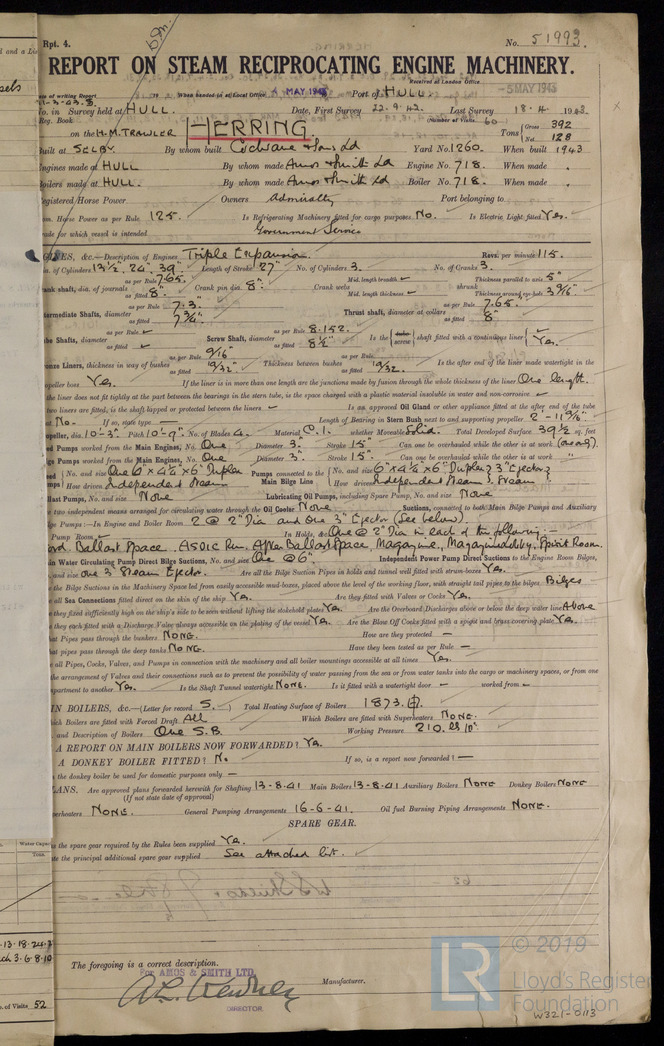 Rpt. 4.
No. 51993.
REPORT ON STEAM RECIPROCATING ENGINE MACHINERY.
Received at London Office
of writing Report 19 When handed in at Local Office 4 MAY 1943 Port of HULL. -5 MAY 1943
No. in Survey held at HULL. Date, First Survey 22.9.42. Last Survey 18.4.1943.
Reg. Book (Number of Visits 60
on the H.M. TRAWLER HERRING. Tons Gross 392
Net 128
Built at SELBY. By whom built Cochrane & Sons Ld Yard No. 1260. When built 1943
Engines made at HULL By whom made Amos & Smith Ld Engine No. 718. When made
Boilers made at HULL. By whom made Amos & Smith Ld Boiler No. 718. When made
Registered Horse Power Owners Admiralty Port belonging to
Nom. Horse Power as per Rule 125. Is Refrigerating Machinery fitted for cargo purposes No. Is Electric Light fitted Yes.
Trade for which vessel is intended Government Service
ENGINES, &c.—Description of Engines Triple Expansion. Revs. per minute 115.
Dia. of Cylinders 13½, 24, 39" Length of Stroke 27" No. of Cylinders 3. No. of Cranks 3.
Crank shaft, dia. of journals as per Rule 7.65 as fitted 8" Crank pin dia. 8" Crank webs Mid. length breadth Thickness parallel to axis 5"
Mid. length thickness shrunk Thickness around eye-hole 3 9/16"
Intermediate Shafts, diameter as per Rule 7.3" as fitted 7¾" Thrust shaft, diameter at collars as per Rule 7.65" as fitted 8"
Tube Shafts, diameter as per Rule as fitted Screw Shaft, diameter as per Rule 8.152. as fitted 8½" Is the screw shaft fitted with a continuous liner Yes.
Bronze Liners, thickness in way of bushes as per Rule 9/16" as fitted 19/32" Thickness between bushes as per Rule as fitted 19/32" Is the after end of the liner made watertight in the
propeller boss Yes. If the liner is in more than one length are the junctions made by fusion through the whole thickness of the liner One length.
the liner does not fit tightly at the part between the bearings in the stern tube, is the space charged with a plastic material insoluble in water and non-corrosive
two liners are fitted, is the shaft lapped or protected between the liners Is an approved Oil Gland or other appliance fitted at the after end of the tube
No. If so, state type Length of Bearing in Stern Bush next to and supporting propeller 2'-11⅝"
Propeller, dia 10'-3" Pitch 10'-9" No. of Blades 4. Material C.I. whether Moveable Solid. Total Developed Surface 39½ sq. feet
Feed Pumps worked from the Main Engines, No. One Diameter 3" Stroke 15" Can one be overhauled while the other is at work
Bilge Pumps worked from the Main Engines, No. One Diameter 3" Stroke 15" Can one be overhauled while the other is at work "
Feed Pumps No. and size One 6" x 4¼" x 6" Duplex Pumps connected to the Main Bilge Line No. and size 6" x 4¼" x 6" Duplex 3" Ejector
How driven Independent Steam How driven Independent Steam Steam
Ballast Pumps, No. and size None Lubricating Oil Pumps, including Spare Pump, No. and size None
two independent means arranged for circulating water through the Oil Cooler None Suctions, connected to both Main Bilge Pumps and Auxiliary
Bilge Pumps:—In Engine and Boiler Room 2 @ 2" Dia and One 3" Ejector (See below).
Pump Room In Holds, &c. One @ 2" Dia in each of the following:—
Ford. Ballast Space, ASDIC Rm, After Ballast Space, Magazine, Magazine Lobby, Spirit Room.
Main Water Circulating Pump Direct Bilge Suctions, No. and size One @ 6". Independent Power Pump Direct Suctions to the Engine Room Bilges,
and size One 3" Steam Ejector. Are all the Bilge Suction Pipes in holds and tunnel well fitted with strum-boxes Yes.
the Bilge Suctions in the Machinery Space led from easily accessible mud-boxes, placed above the level of the working floor, with straight tail pipes to the bilges Bilges
all Sea Connections fitted direct on the skin of the ship Yes. Are they fitted with Valves or Cocks Yes.
they fixed sufficiently high on the ship's side to be seen without lifting the stokehold plates Yes. Are the Overboard Discharges above or below the deep water line Above
they each fitted with a Discharge Valve always accessible on the plating of the vessel Yes. Are the Blow Off Cocks fitted with a spigot and brass covering plate Yes.
What Pipes pass through the bunkers NONE. How are they protected —
What pipes pass through the deep tanks NONE. Have they been tested as per Rule —
all Pipes, Cocks, Valves, and Pumps in connection with the machinery and all boiler mountings accessible at all times Yes.
the arrangement of Valves and their connections such as to prevent the possibility of water passing from the sea or from water tanks into the cargo or machinery spaces, or from one
compartment to another Yes. Is the Shaft Tunnel watertight NONE. Is it fitted with a watertight door — worked from —
MAIN BOILERS, &c.—(Letter for record S.) Total Heating Surface of Boilers 1873.
Which Boilers are fitted with Forced Draft All Which Boilers are fitted with Superheaters NONE.
and Description of Boilers One S.B. Working Pressure 210. lb
A REPORT ON MAIN BOILERS NOW FORWARDED? Yes.
A DONKEY BOILER FITTED? No If so, is a report now forwarded? —
the donkey boiler be used for domestic purposes only —
PLANS. Are approved plans forwarded herewith for Shafting 13-8-41 Main Boilers 13-8-41 Auxiliary Boilers NONE Donkey Boilers NONE
(If not state date of approval)
Superheaters NONE. General Pumping Arrangements 16-6-41. Oil fuel Burning Piping Arrangements NONE.
SPARE GEAR.
the spare gear required by the Rules been supplied Yes.
the principal additional spare gear supplied See attached list.
The foregoing is a correct description.
For AMOS & SMITH LTD.
Manufacturer.
DIRECTOR.
No. of Visits 52
LR © 2019
Lloyd's Register
Foundation
W321-0113